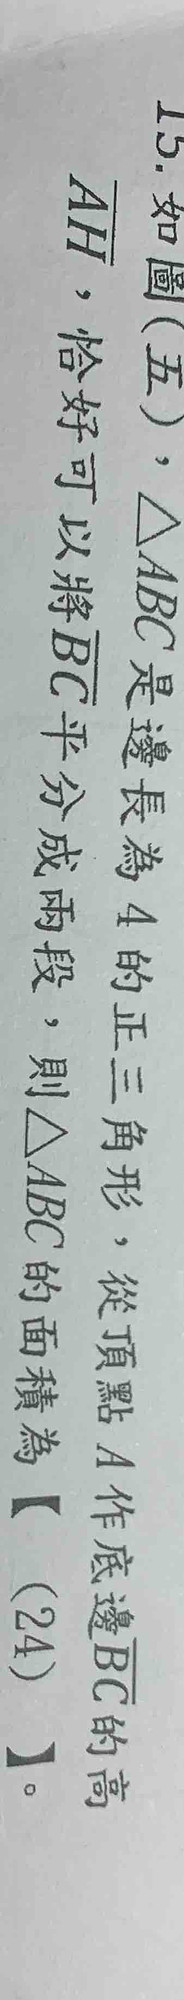 15. 如圖(五)，△ABC是邊長為4的正三角形，從頂點A作底邊BC的高
AH，恰好可以將BC平分成兩段，則△ABC的面積為【 (24) 】。